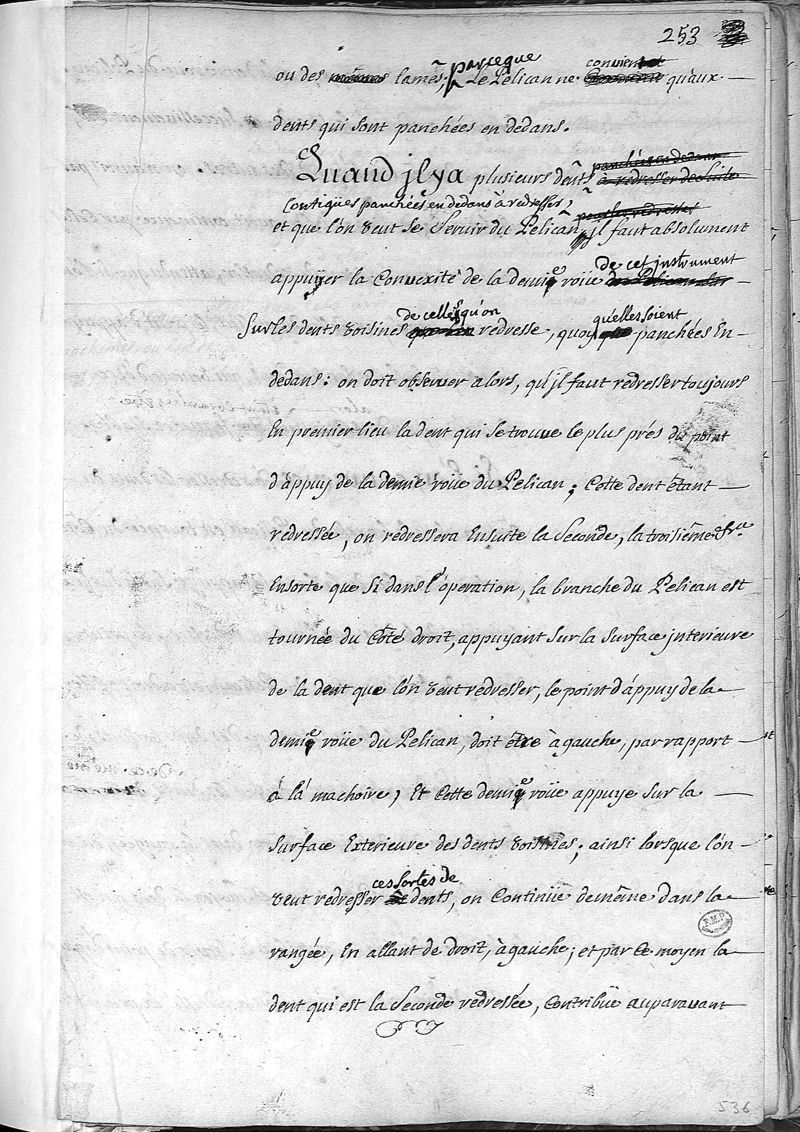 253
ou des mêmes lames, parceque Le Pelican ne convient qu'aux
dents qui sont panchées en dedans.
Quand jl y a plusieurs dents panchées en dedans à redresser de suite
Contigues panchées en dedans à redresser, pour les redresser
et que l'on veut se Servir du Pelican, jl faut absolument
appuÿer la Convexité de la demie roüe de cet instrument
Sur les dents voisines de celles qu'on redresse, quoy qu'elles soient panchées En
dedans: on doit observer alors, qu'jl faut redresser toujours
En premier lieu la dent qui se trouve le plus prés du point
d'appuy de la demie roüe du Pelican; Cette dent étant
redressée, on redressera Ensuite la Seconde, la troisiême &ca
Ensorte que Si dans l'operation, la branche du Pelican est
tournée du Côté droit, appuyant Sur la Surface jnterieure
de la dent que l'on veut redresser, le point d'appuy de la
demie roüe du Pelican, doit être à gauche, par rapport
à la machoire, Et Cette demie roüe appuye Sur la
Surface Exterieure des dents voisines; ainsi lorsque l'on
veut redresser ces sortes de dents, on Continüe de même dans la
rangée, En allant de droit, à gauche; et par Ce moyen la
dent qui est la Seconde redressée, Contribüe auparavant
536